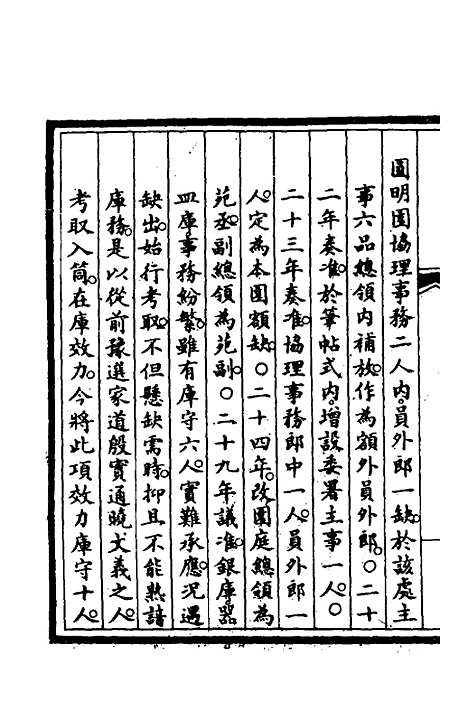 圓明園協理事務二人内。員外郎一缺。於該處主
事六品總領内補放。作為額外員外郎。○二十
二年奏准。於筆帖式内。增設委署主事一人。○
二十三年奏准。協理事務郎中一人。員外郎一
人。定為本園額缺。○二十四年。改園庭總領為
苑丞。副總領為苑副。○二十九年議准。銀庫器
皿庫。事務紛繁。雖有庫守六人。實難承應。況遇
缺出。始行考取。不但懸缺需時。抑且不能熟諳
庫務。是以從前豫選家道殷實通曉文義之人。
考取入筒。在庫效力。今將此項效力庫守十人。